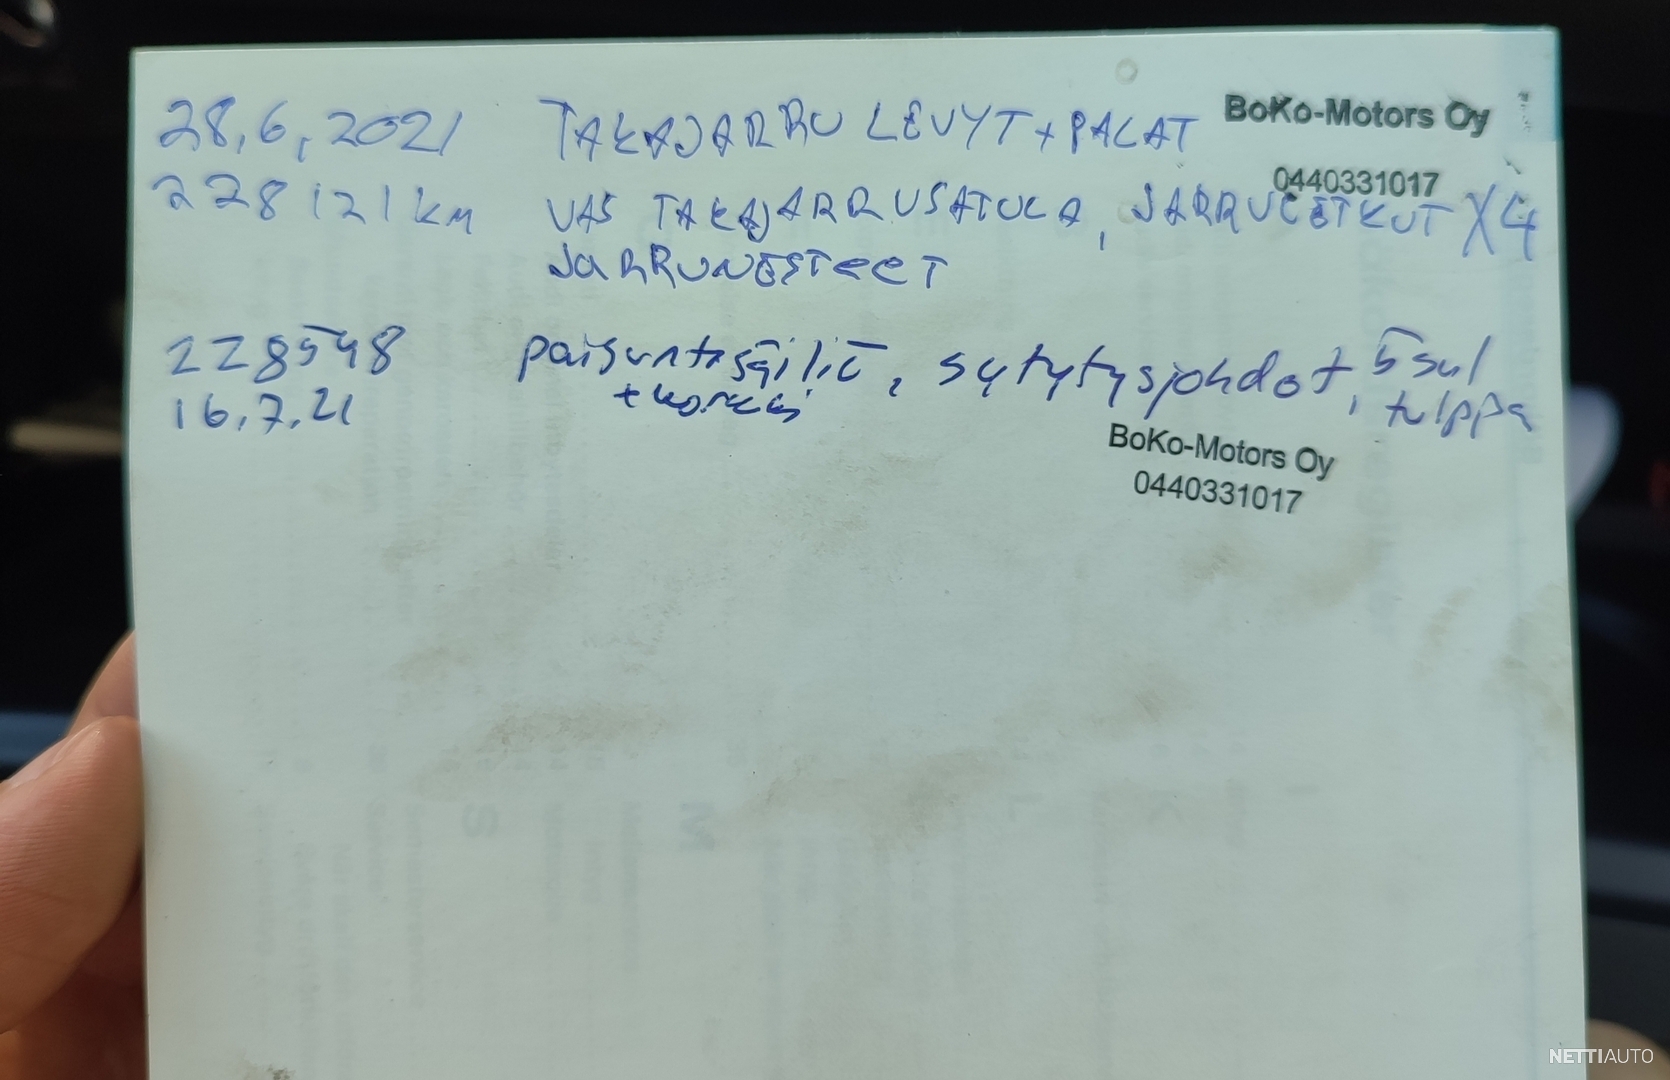 28.6.2021 TAKAJARRU LEVYT + PALAT BoKo-Motors Oy
0440331017
228121 km VAS TAKAJARRUSATULA, JARRULETKUT X4
JARRUNESTEET
228548 paisuntasäiliö, sytytysjohdot, 5sul
16.7.21 + korkki tulppa
BoKo-Motors Oy
0440331017
NETTIAUTO